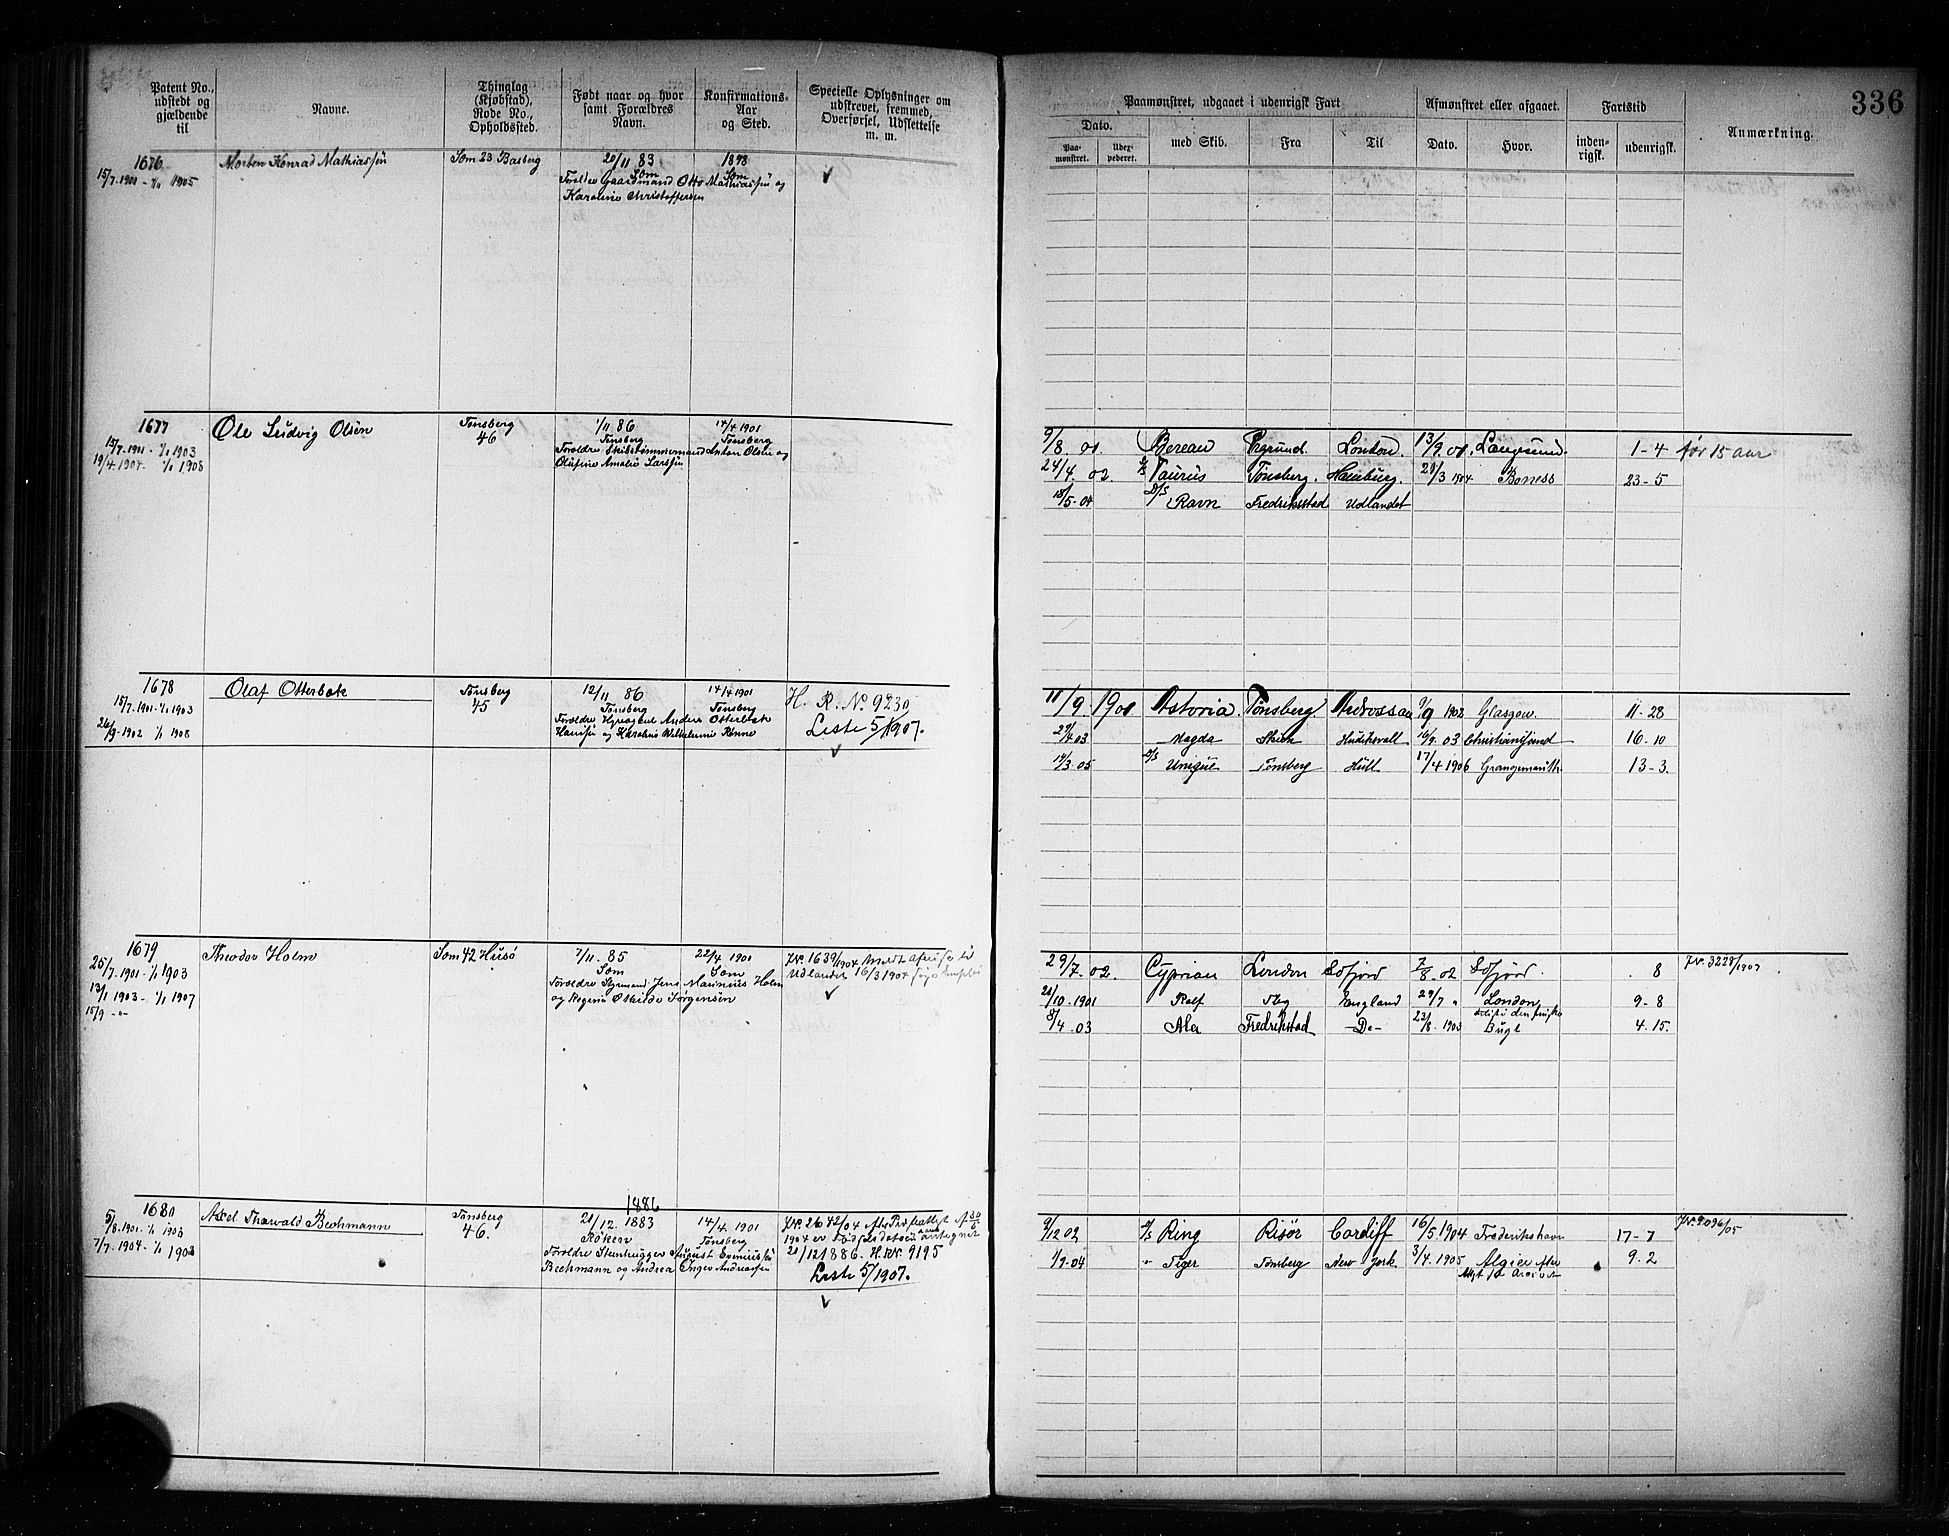 336
Patent No., udstedt og gjældende til
Navne.
Thinglag (Kjøbstad), Rode No., Opholdssted.
Født naar og hvor samt Forældres Navn.
Konfirmations-Aar og Sted.
Specielle Oplysninger om udskrevet, fremmed, Overførsel, Udslettelse m. m.
Paamønstret, udgaaet i udenrigsk Fart
Afmønstret eller afgaaet.
Fartstid
Anmærkning.
Dato.
Paa-mønstret.
med Skib.
Fra
Til
Dato.
Hvor.
inden-rigsk.
udenrigsk.
1676 Morten Konrad Mathiassen Sem 23 Basberg 20/11 83 1898
15/7.1901 - 1/1 1905 Sem Sem
Forældre Gaardmand Otto Mathiassen og
Karoline Christoffersen
1677 Ole Ludvig Olsen Tønsberg 1/11 86 14/4 1901
15/7.1901 - 1/1 1903 46 Tønsberg Tønsberg
19/4 1904. 1/1 1908 Forældre Skibstømmermand Anton Olsen og
Olufine Amalie Larssen
9/8. 01 Bereau London. 13/9.01. Langesund. 1-4 før 15 aar
24/4. 02 Taurus Tønsberg. Hamburg. 28/3 1904 Boness 23-5
18/5-04 D/S Ravn Fredriksstad Udlandet
1678 Olaf Otterbek Tønsberg 12/11 86 14/4 1901 H. R. No 9230
15/7.1901 - 1/1 1903 45 Tønsberg Tønsberg Liste 5/1907.
26/9-1902 1/1 1908 Forældre Anders Otterbek
Hansen og Karoline Wilhelmine Rønne
11/9. 1901 Astoria. Tønsberg Ardrossan 9/9 1902 Glasgow. 11-28
Magda Hudiksvall 16/9. 03 Christianssand 16-10
14/3-05 D/S Unique Tønsberg Hull 17/4 1906 Grangemouth 13-3.
1679 Theodor Holm Sem 42 Husø 7/11. 85 22/4 1901 Jr. 1639/1904
25/7.1901 - 1/1 1903 Sem Sem Udlandet 16/3 1904
13/1 1903 - 1/1 1907 Forældre Styrmand Jens Marinius Holm
15/9 -"- og Regine Jørgensen
29/7. 02. Cyprian London 7/8-02 8 Jr. 3228/1907
10-1901 Rolf Tbg England 29/7 " London 9-8
8/4.03 Fredrikstad -Do- 23/8. 1903 4.15.
1680 Axel Thorvald Bechmann Tønsberg 1886
5/8.1901 - 1/1 1903 46. 21/12. 1883 14/4 1901 Jr. 2642/04
7/7.1904 - 1/1 1908 Tønsberg
Forældre Stenhugger August
Bechmann og Andrea Inger Andreassen
21/12 1886. H.R. 9195
Liste 5/1907.
9/12 02 D/S Ring Risør Cardiff 16/5 1904 Frederikshavn 17-7
1/9-04 " Tiger Tønsberg New York 3/4. 1905 Algier 9.2